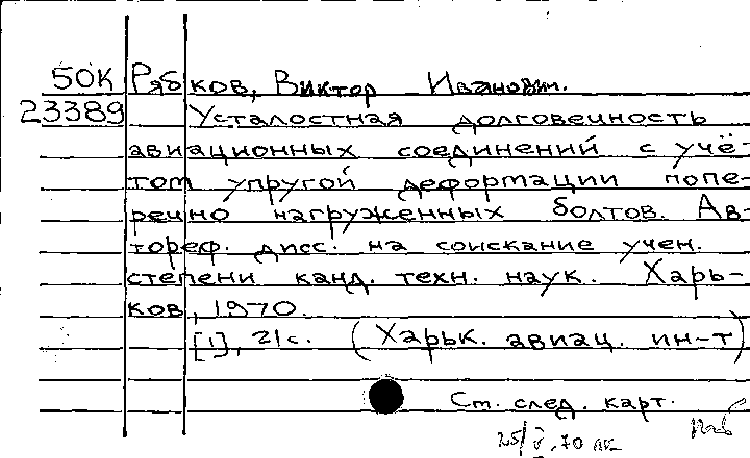 50К Рябков, Виктор Иванович.
23389 Усталостная долговечность
авиационных соединений с учё-
том упругой дефортации попе-
речно нагруженных болтов. Ав-
тореф. дисс. на соискание учен.
степени канд. техн. наук. Харь-
ков, 1970.
[1], 21с. (Харьк. авиац. ин-т)
Ст. след. карт.
25/V.70